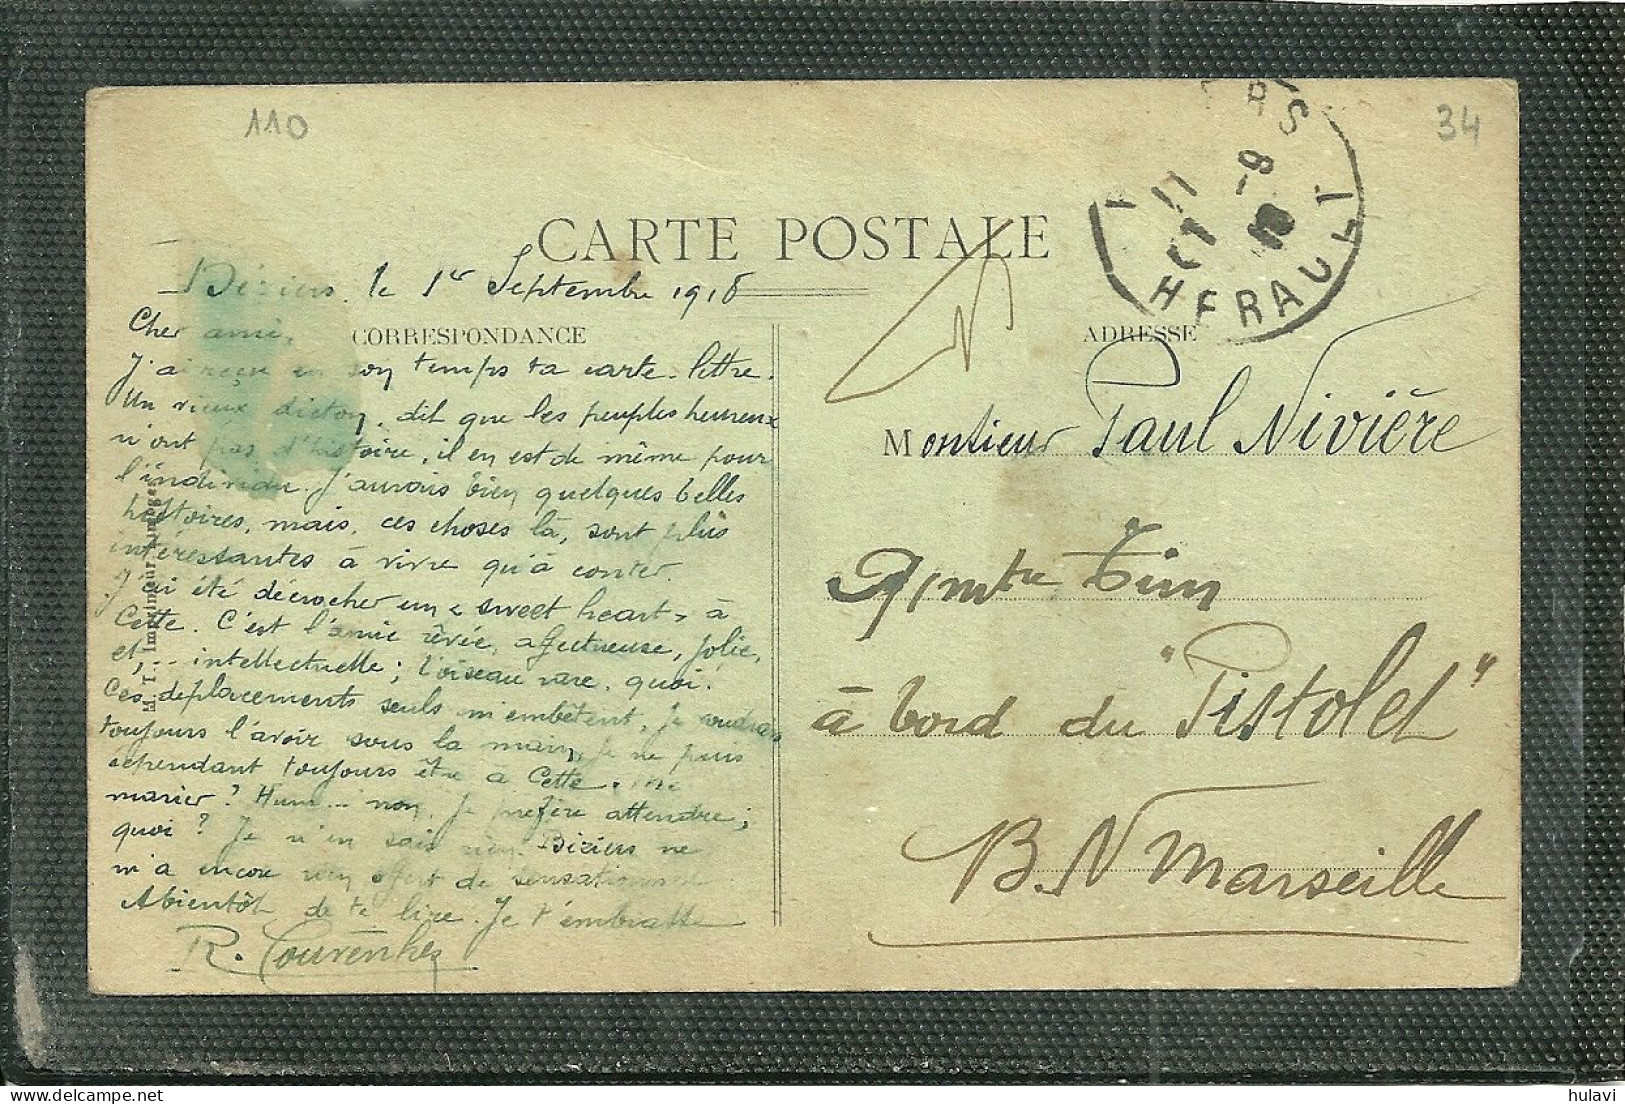 110
34
HERAULT
CARTE POSTALE
Béziers, le 1er Septembre 1918
CORRESPONDANCE
ADRESSE
Cher ami,
J'ai reçu en son temps ta carte-lettre.
Un vieux dicton, dit que les peuples heureux
n'ont pas d'histoire, il en est de même pour
l'individu. J'aurais bien quelques belles
histoires, mais, ces choses là, sont plus
intéressantes à vivre qu'à conter.
J'ai été décrocher un "sweet heart" à
Cette. C'est l'amie rêvée, affectueuse, jolie,
et,... intellectuelle; l'oiseau rare, quoi!
Ces déplacements seuls m'embêtent. Je voudrais
toujours l'avoir sous la main, je ne puis
cependant toujours être à Cette. Me
marier? Hum... non, je préfère attendre;
quoi? Je n'en sais rien. Béziers ne
m'a encore rien offert de sensationnel
Abientôt de te lire. Je t'embrasse
Monsieur Paul Nivière
à bord du "Pistolet"
B. N Marseille
Imprimeur
hulavi